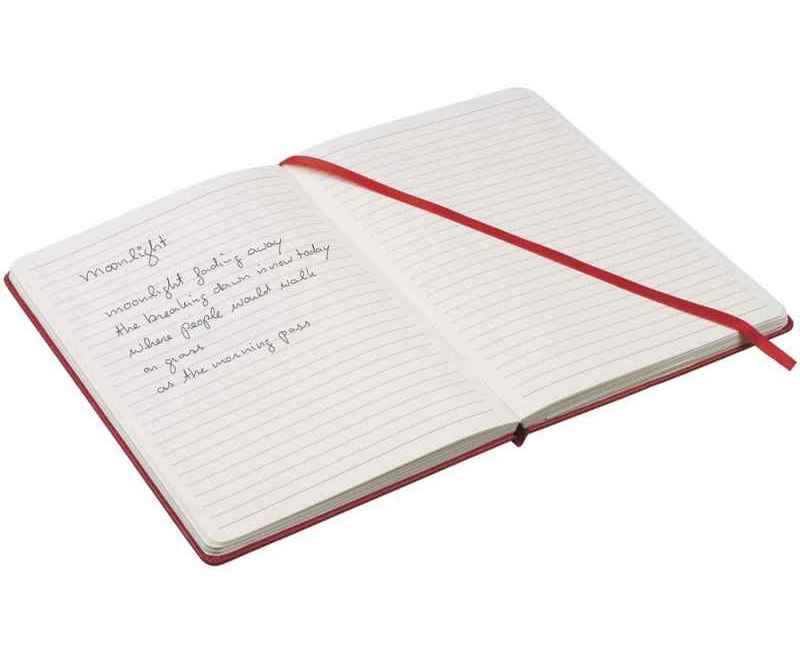 Moonlight
moonlight fading away
the breaking dawn is now today
where people would walk
on grass
as the morning pass